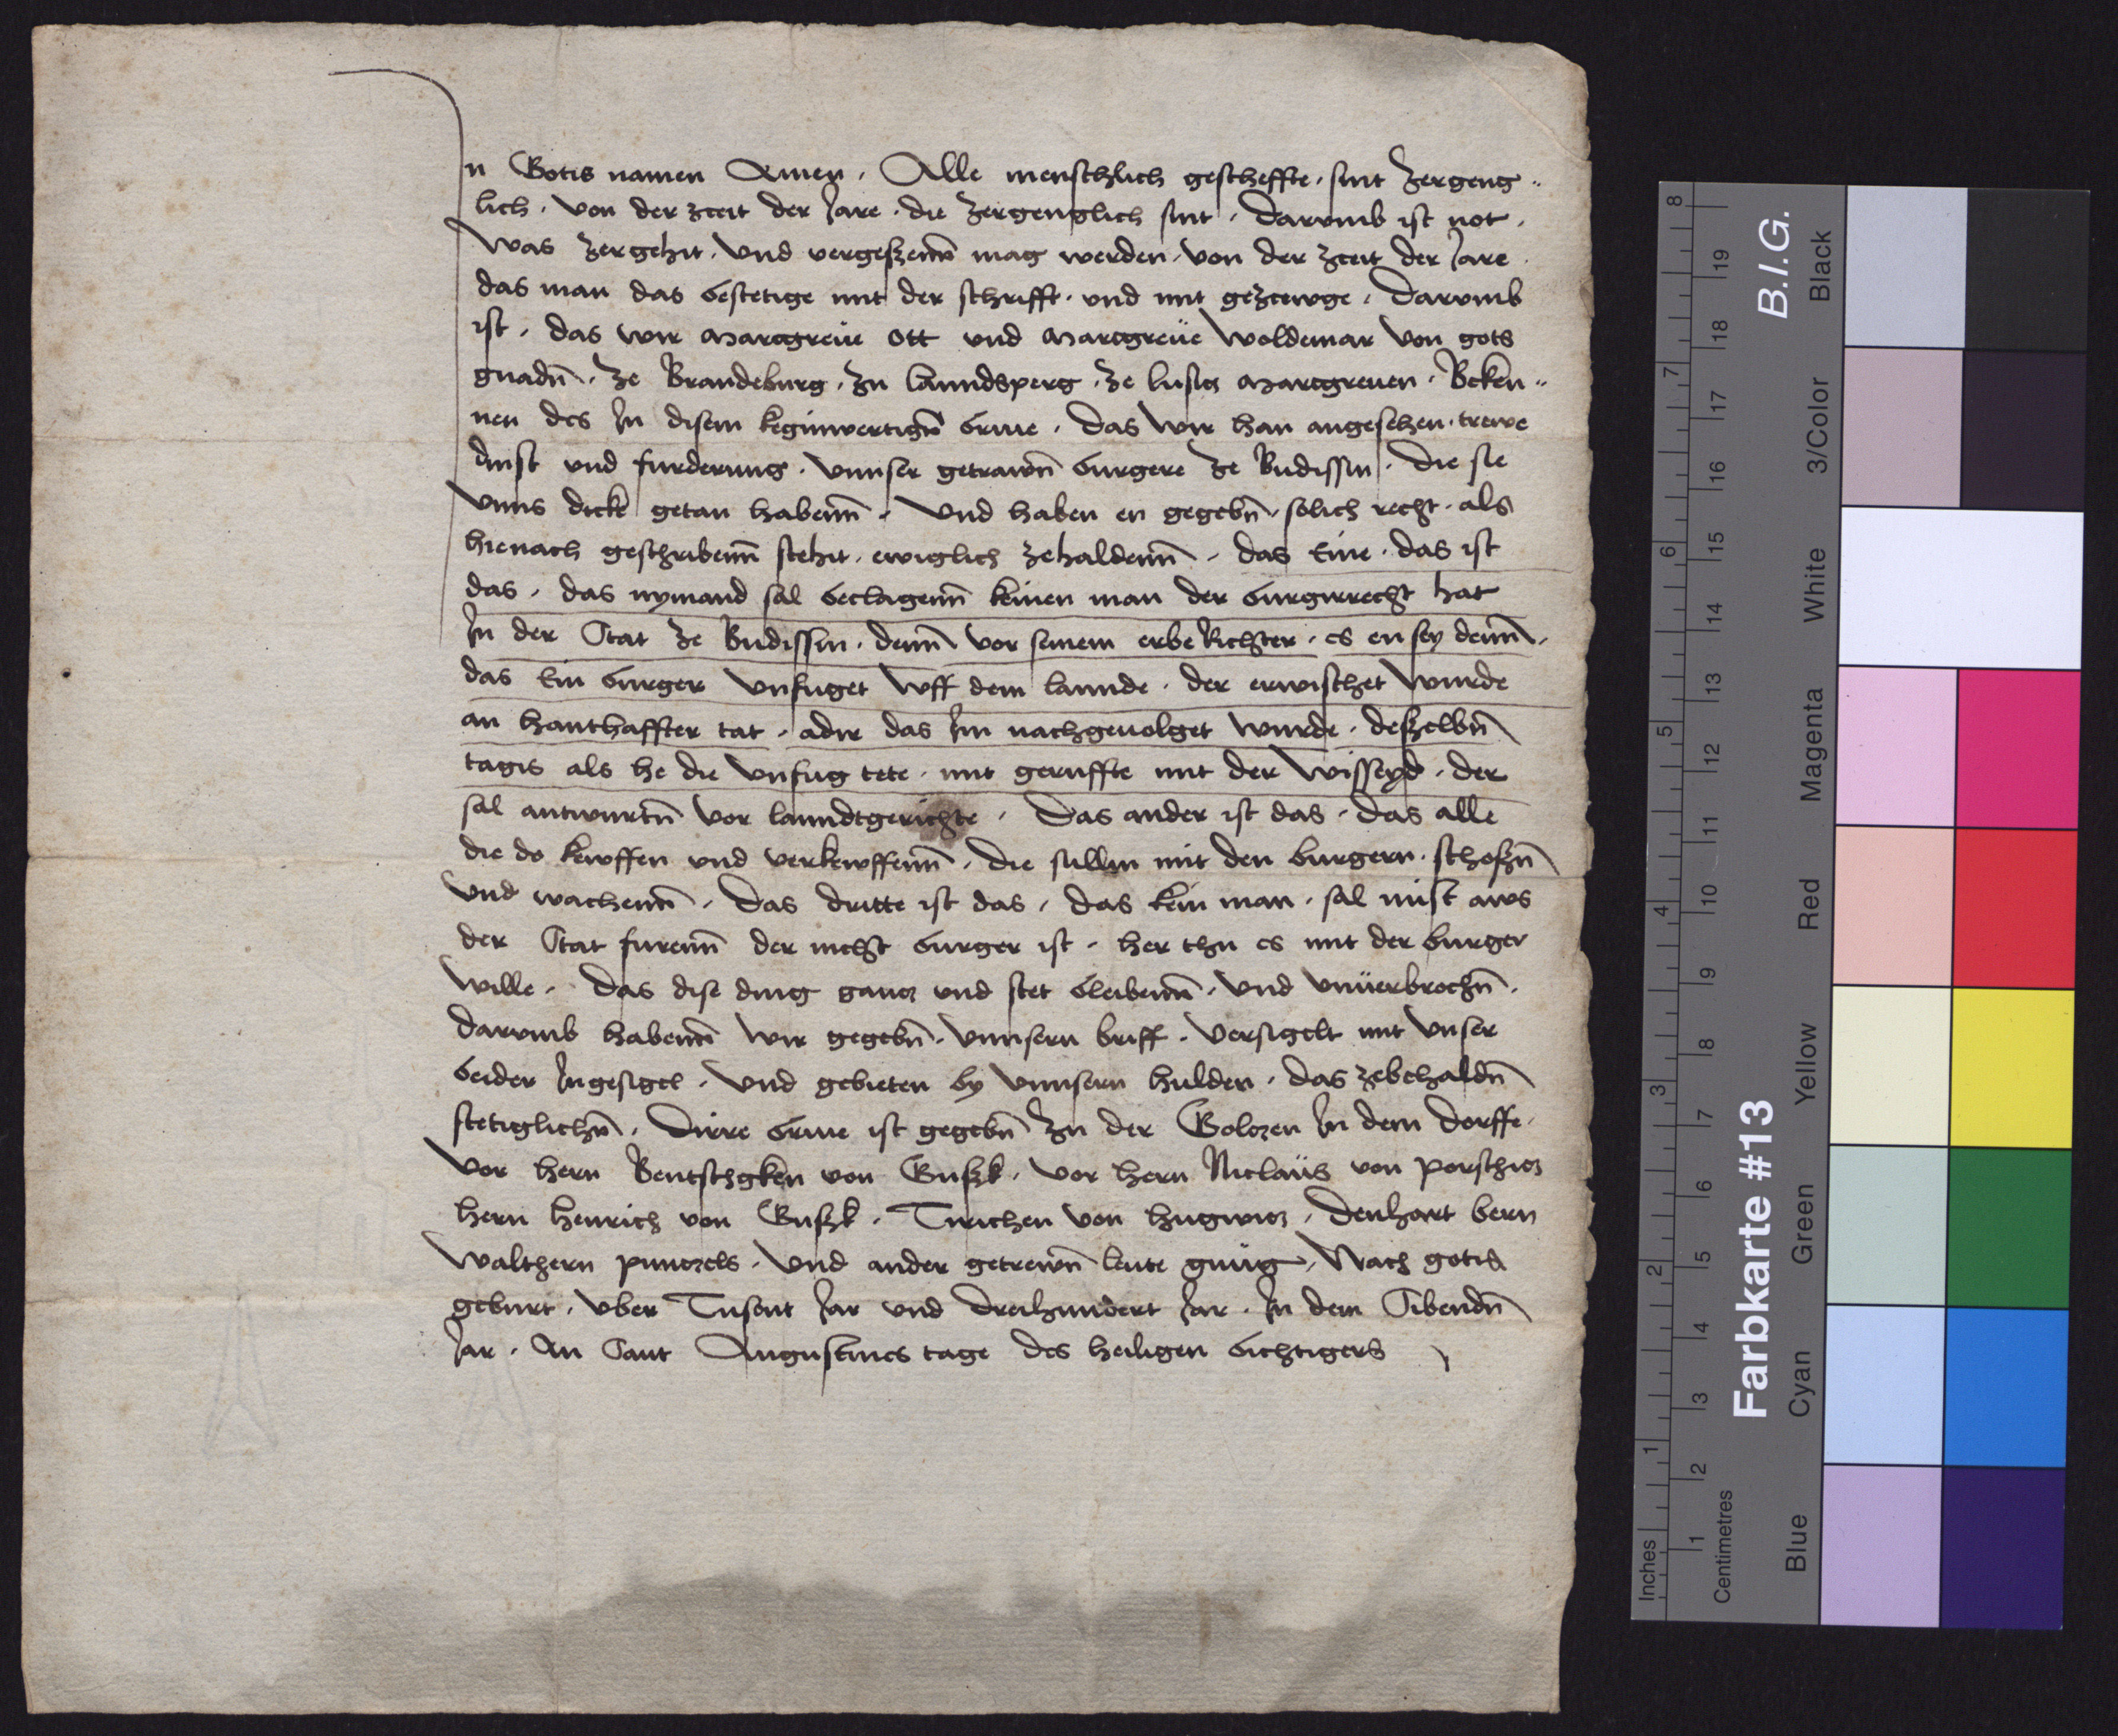 In Gotis namen Amen. Alle menschlich gescheffte. sint zergeng..
lich. von der zceit der Jare. die zergenglich sint. darvmb ist not.
Was zergehit. vnd vergeszenn mag werden. von der zceit der Jare.
das man das bestetige mit der schrifft. vnd mit gezcewge. Darvmb
ist. das wir Marcgreue Ott vnd Marcgreue Woldemar von gots
gnadn. ze Brandeburg. zu lanndsperg. ze lusicz Marcgreuen. Beken..
nen des In disem keginwertigen briue. Das wir han angesehen. trewe
dinst vnd furderung. vnnser getrawn burgere ze Budissin. Die sie
vnns dicke getan habenn. Vnd haben en gegebn. solich recht. als
hienach geschribenn stehit. ewiglich zehaldenn. das Eine. das ist
das. das nymand sal beclagenn keinen man der burgirrecht hat
In der Stat ze Budissin. denn vor seinem erbe Richter. es en sey denn.
das Ein burger vnfuget vff dem lannde. der erwischet wurde
an hanthaffter tat. adir das Im nachgeuolget wurde. deszelbn
tagis als he die vnfug tete. mit geruffte mit der wisseyd. der
sal antwurtn vor lanndtgerichte. Das ander ist das. das alle
die do kewffen vnd verkewffenn. die sullin mit den burgern. schoszn
vnd wachenn. Das dritte ist das. das kein man. sal mist aws
der Stat furenn der nicht burger ist. her thu es mit der burger
wille. Das dise ding gancz vnd stet bleibenn. vnd vnuerbrochn.
darvmb habenn wir gegebn. vnnsern briff. versigelt mit vnser
beider Ingesigel. Vnd gebieten by vnnsern hulden. das zebehaldn
stetiglichn. Dirre briue ist gegebn zu der Golczen In dem dorffe.
Vor hern Bentschgken von Guszk. vor hern Niclaus von porschicz
hern henrich von Guszk. Tirichen von hugwicz. Denhart bern
Walthern punczels. Vnd ander getrewn leute gnug. Nach gotis
geburt. vber Tusent Jar vnd dreihundert Jar. In dem Sibendn
Jar. An Sant Augustines tage des heiligen bichtigers
8
7
6
5
4
3
2
1
Inches
19
18
17
16
15
14
13
12
11
10
9
8
7
6
5
4
3
2
1
Centimetres
B.I.G.
Farbkarte #13
Black
3/Color
White
Magenta
Red
Yellow
Green
Cyan
Blue